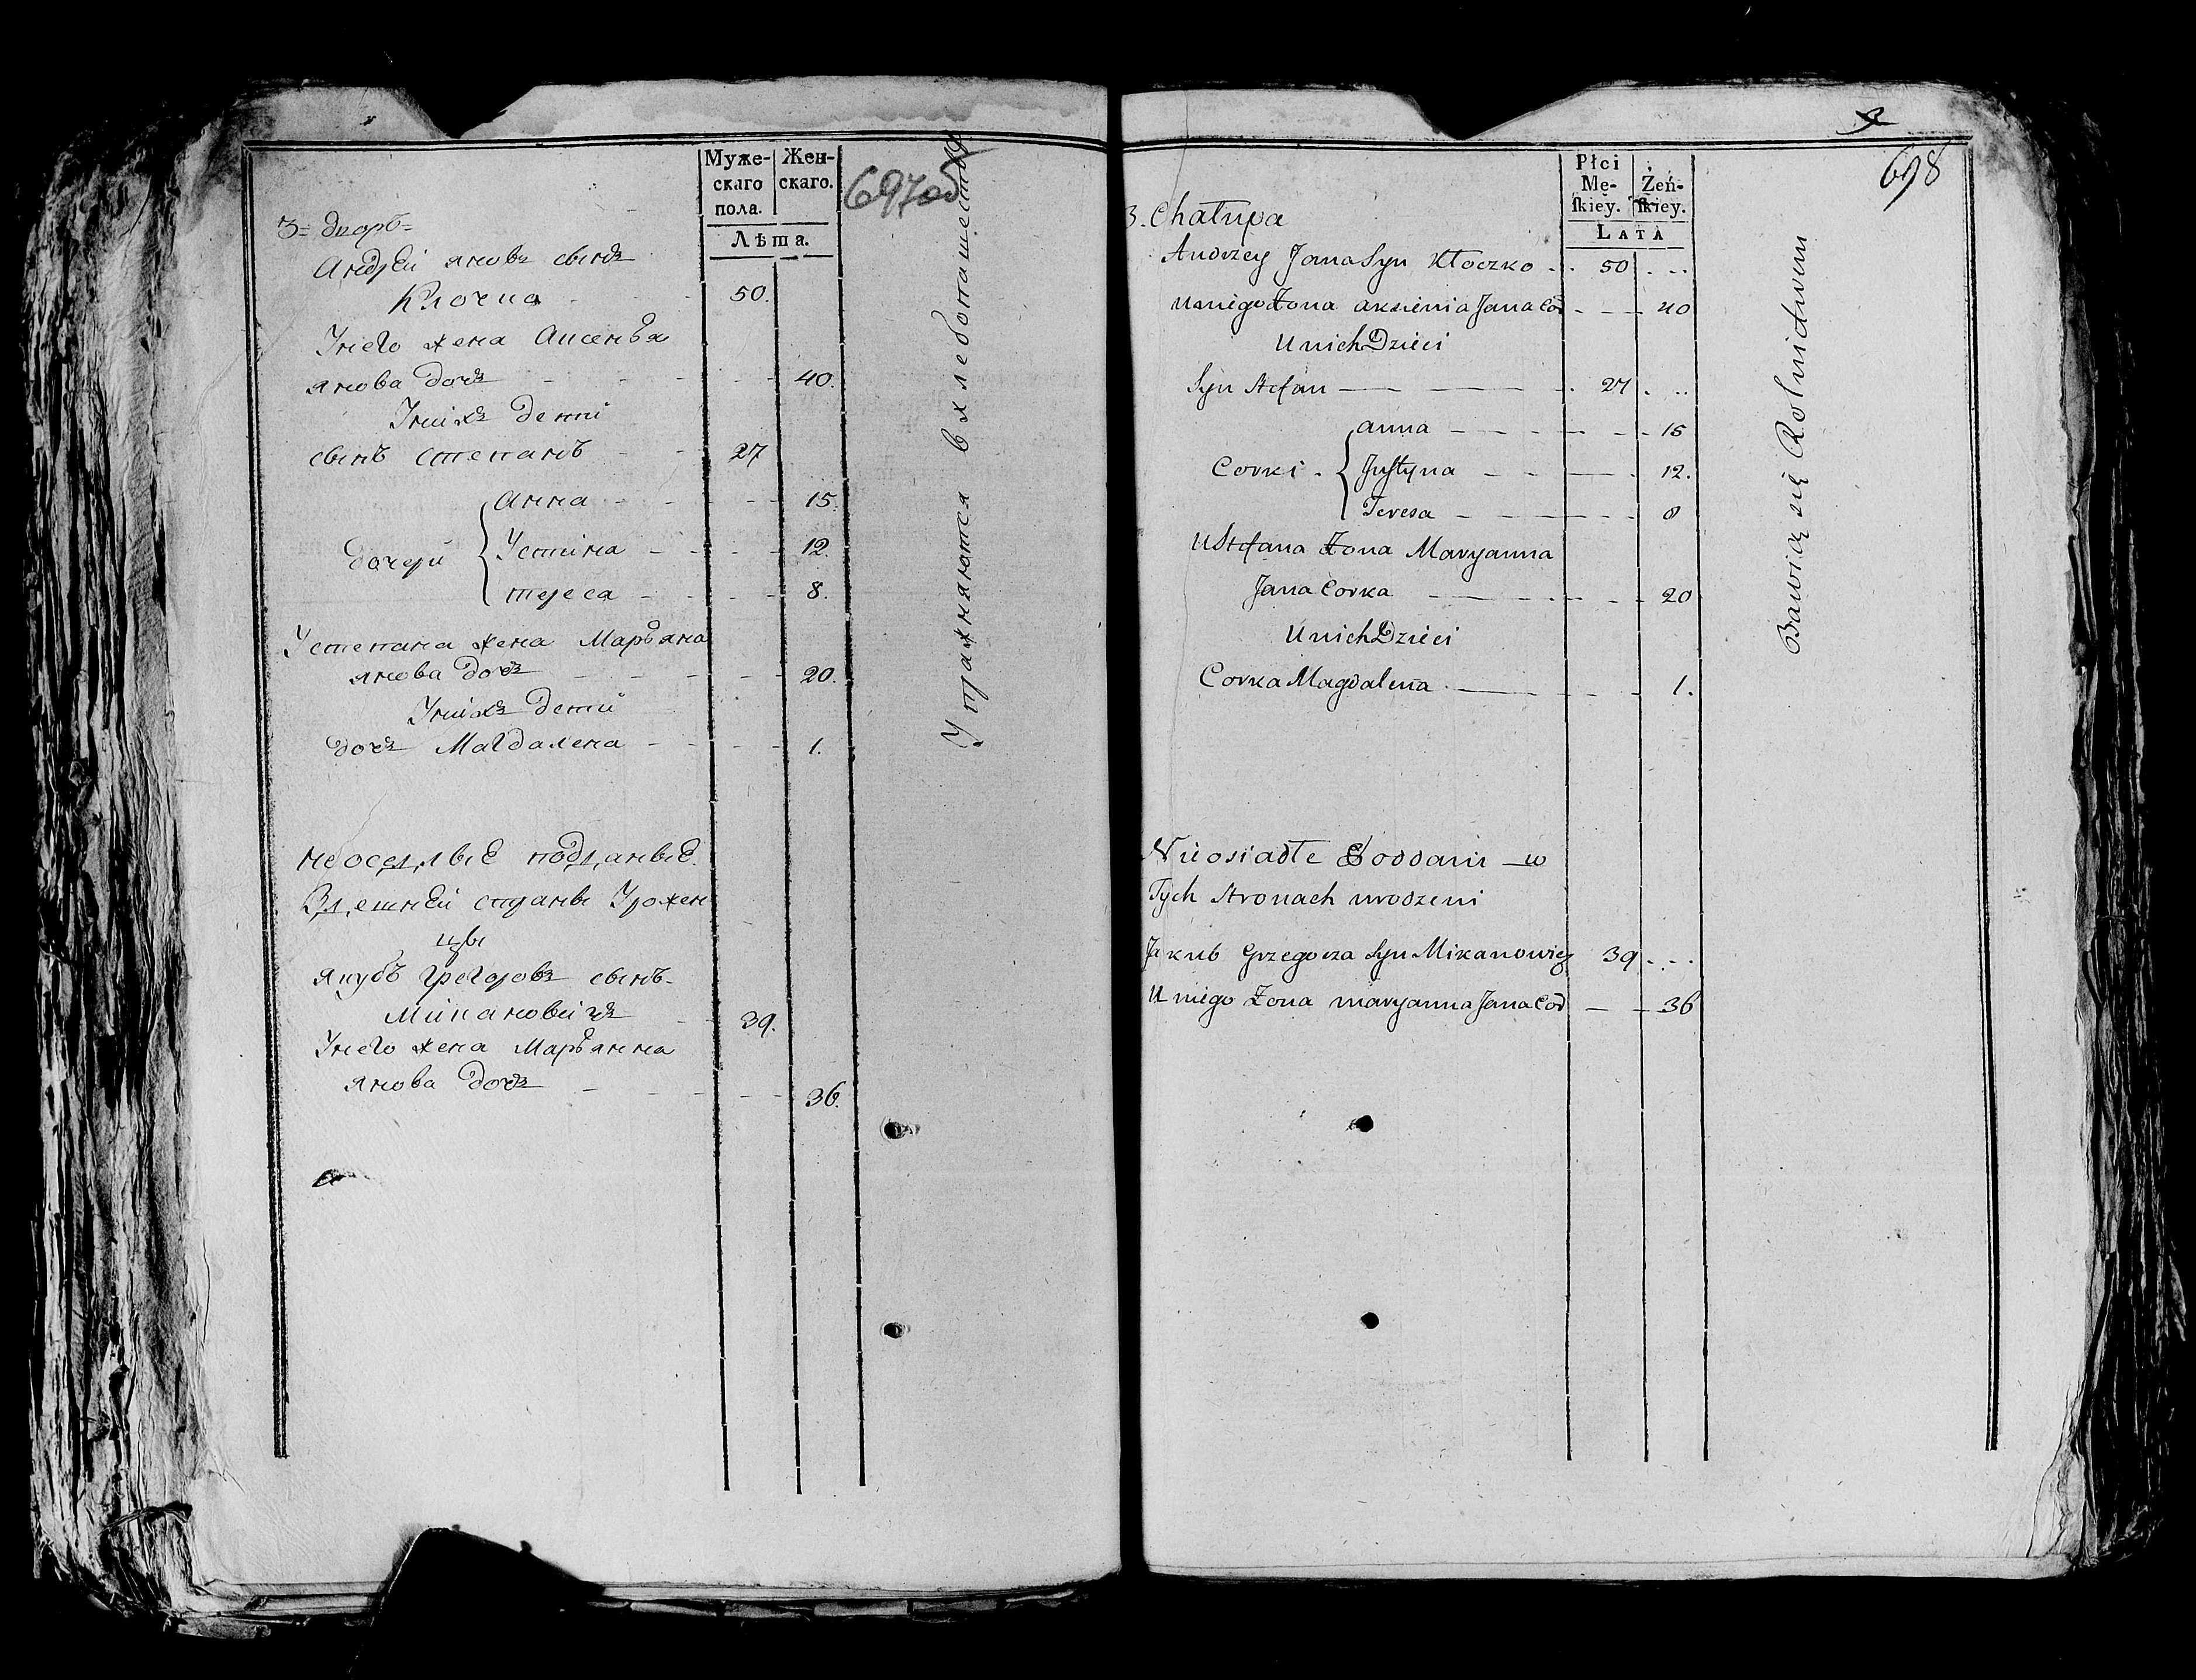 Муже-
скаго
пола.
Жен-
скаго.
Лѣта.
697об
3= дворъ=
Андрей яновъ сынъ
Клочко 50.
Унего жена Аксенья
янова дочь 40.
Унихъ дети
сынъ степанъ 27
дочери
Анна 15.
Устина 12.
тереса 8.
Устепана жена Марьяна
янова дочь 20.
Унихъ дети
дочь Магдалена 1.
неоседлые подданые.
Вздешней стораны Урожен
цы
якубъ Грегоровъ сынъ
Микановичъ 39.
Унего жена Марьянна
янова дочь 36.
Упражняются в хлебопашестве
698
Płci
Mę-
ſkiey.
Żeń-
ſkiey.
LATA
3. Chałupa
Andrzey Jana Syn Kłoczko 50
U niego Żona aksienia Jana Cor 40
U nich Dzieci
Syn Stefan 27
Corki
anna 15
Justyna 12.
Teresa 8
U Stefana Żona Maryanna
Jana Corka 20
U nich Dzieci
Corka Magdalena 1.
Nieosiadłe Poddani w
Tych Stronach urodzeni
Jakub Grzegorza Syn Mikanowicz 39
U niego Żona maryanna Jana Cor 36
Bawią się Rolnictwem